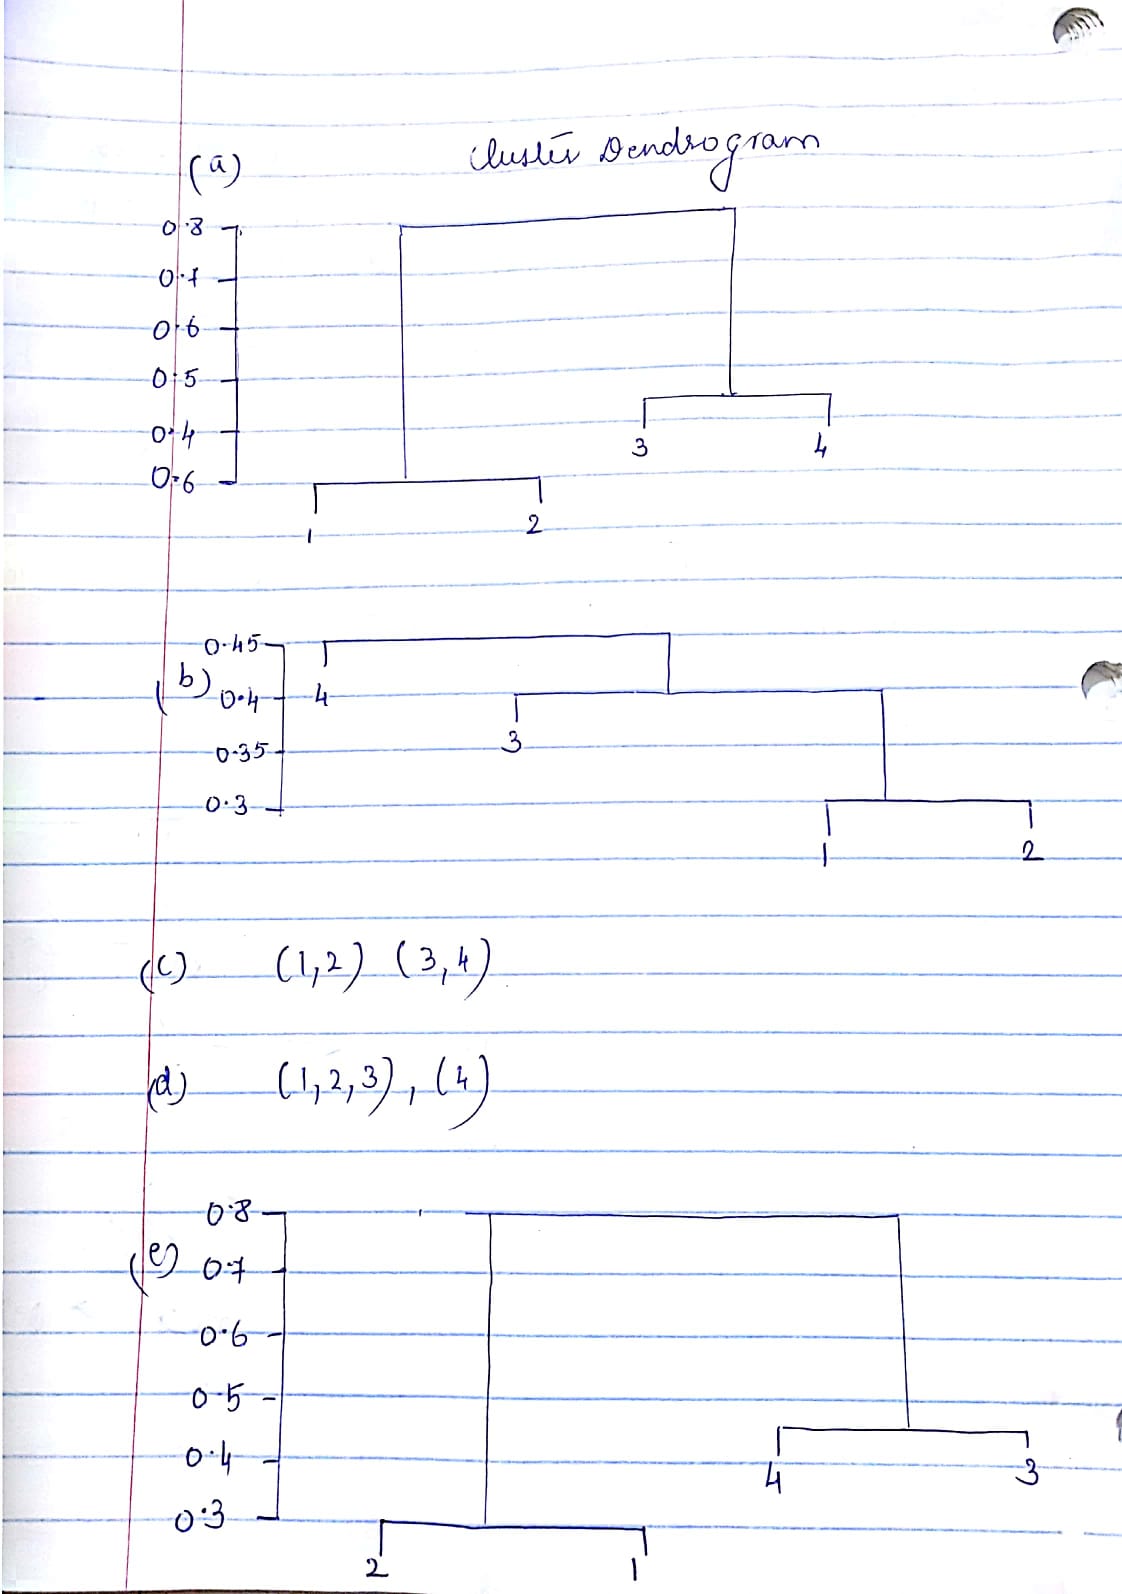 (a) Cluster Dendrogram
0.8
0.7
0.6
0.5
0.4
3 4
0.6
1 2
0.45
(b)
0.4 4
0.35 3
0.3
1 2
(c) (1,2) (3,4)
(d) (1,2,3), (4)
0.8
(e) 0.7
0.6
0.5
0.4
4 3
0.3
2 1